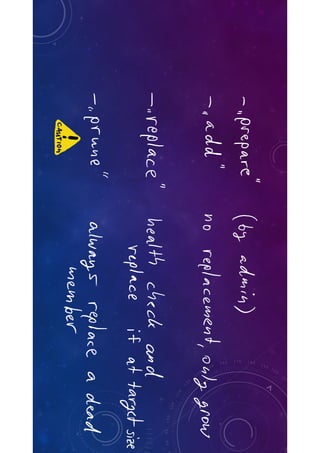 - „prepare" (by admin)
- „add" no replacement, only grow
- „replace" health check and
replace if at target size
- „prune" always replace a dead
member
CAUTION